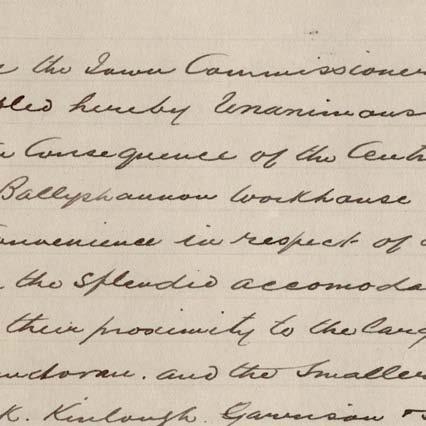 the Town Commissioners
hereby Unanimous
Consequence of the Centr
Ballyshannon Workhouse
onvenience in respect of
the Splendid accomoda
their proximity to the larg
undoran. and the Smaller
K. Kinlough. Garrison